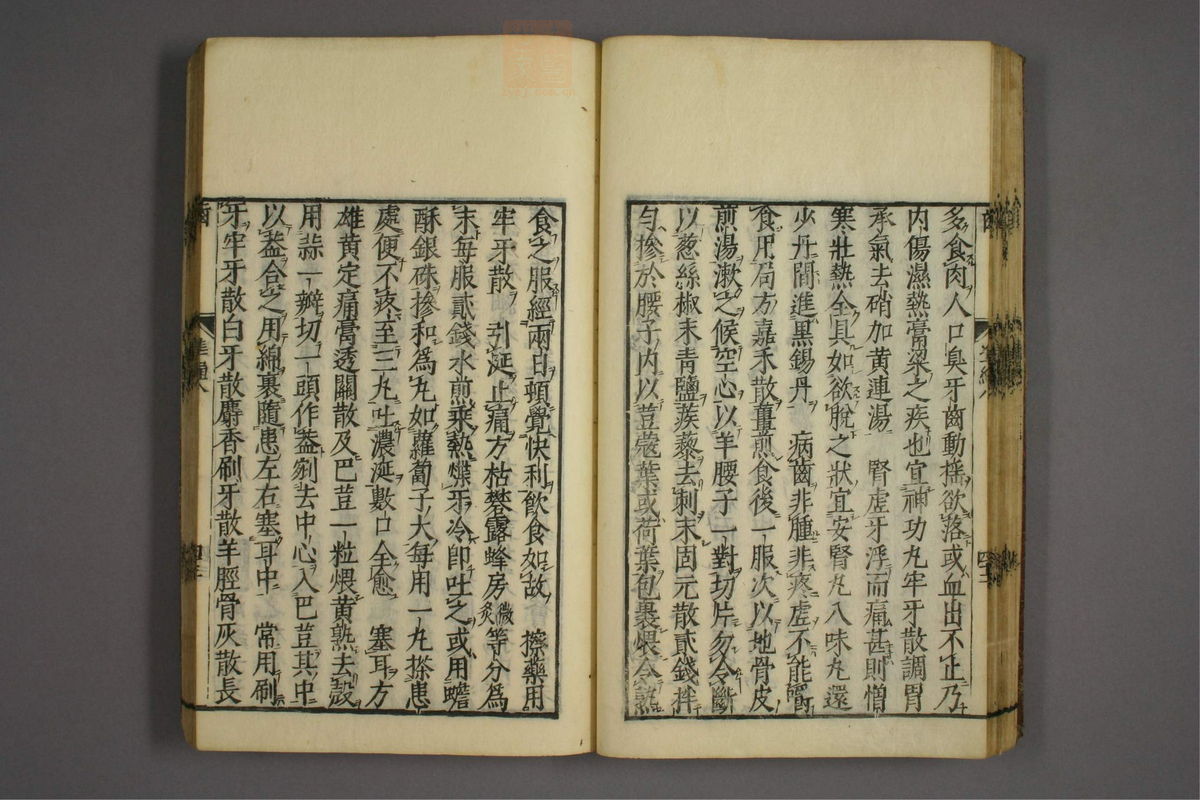 多食肉人口臭牙齒動揺欲落或血出不止乃
内傷濕熱膏梁之疾也宜神功丸牢牙散調胃
承氣去硝加黄連湯 腎虚牙浮而痛甚則憎
寒壯熱全具如欲脫之狀宜安腎丸八味丸還
少丹間進黒錫丹 病齒非腫非疼虚不能嚼
食用局方嘉禾散薑煎食後一服次以地骨皮
煎湯漱之候空心以羊腰子一對切片勿令斷
以葱絲椒末青鹽蒺藜去刺末固元散貳錢拌
匀摻於腰子内以荳蔻葉或荷葉包裹煨令熟
食之服經兩日頓覺快利飲食如故 擦藥用
牢牙散 引涎止痛方枯礬露蜂房微炙等分為
末每服貳錢水煎乗熱煠牙冷即吐之或用蟾
酥銀硃摻和為丸如蘿蔔子大每用一丸搽患
處便不疼至三丸吐濃涎數口全愈 塞耳方
雄黄定痛膏透關散及巴荳一粒煨黄熟去殼
用蒜一瓣切一頭作葢剜去中心入巴荳其中
以葢合之用綿裹隨患左右塞耳中 常用刷
牙牢牙散白牙散麝香刷牙散羊脛骨灰散長